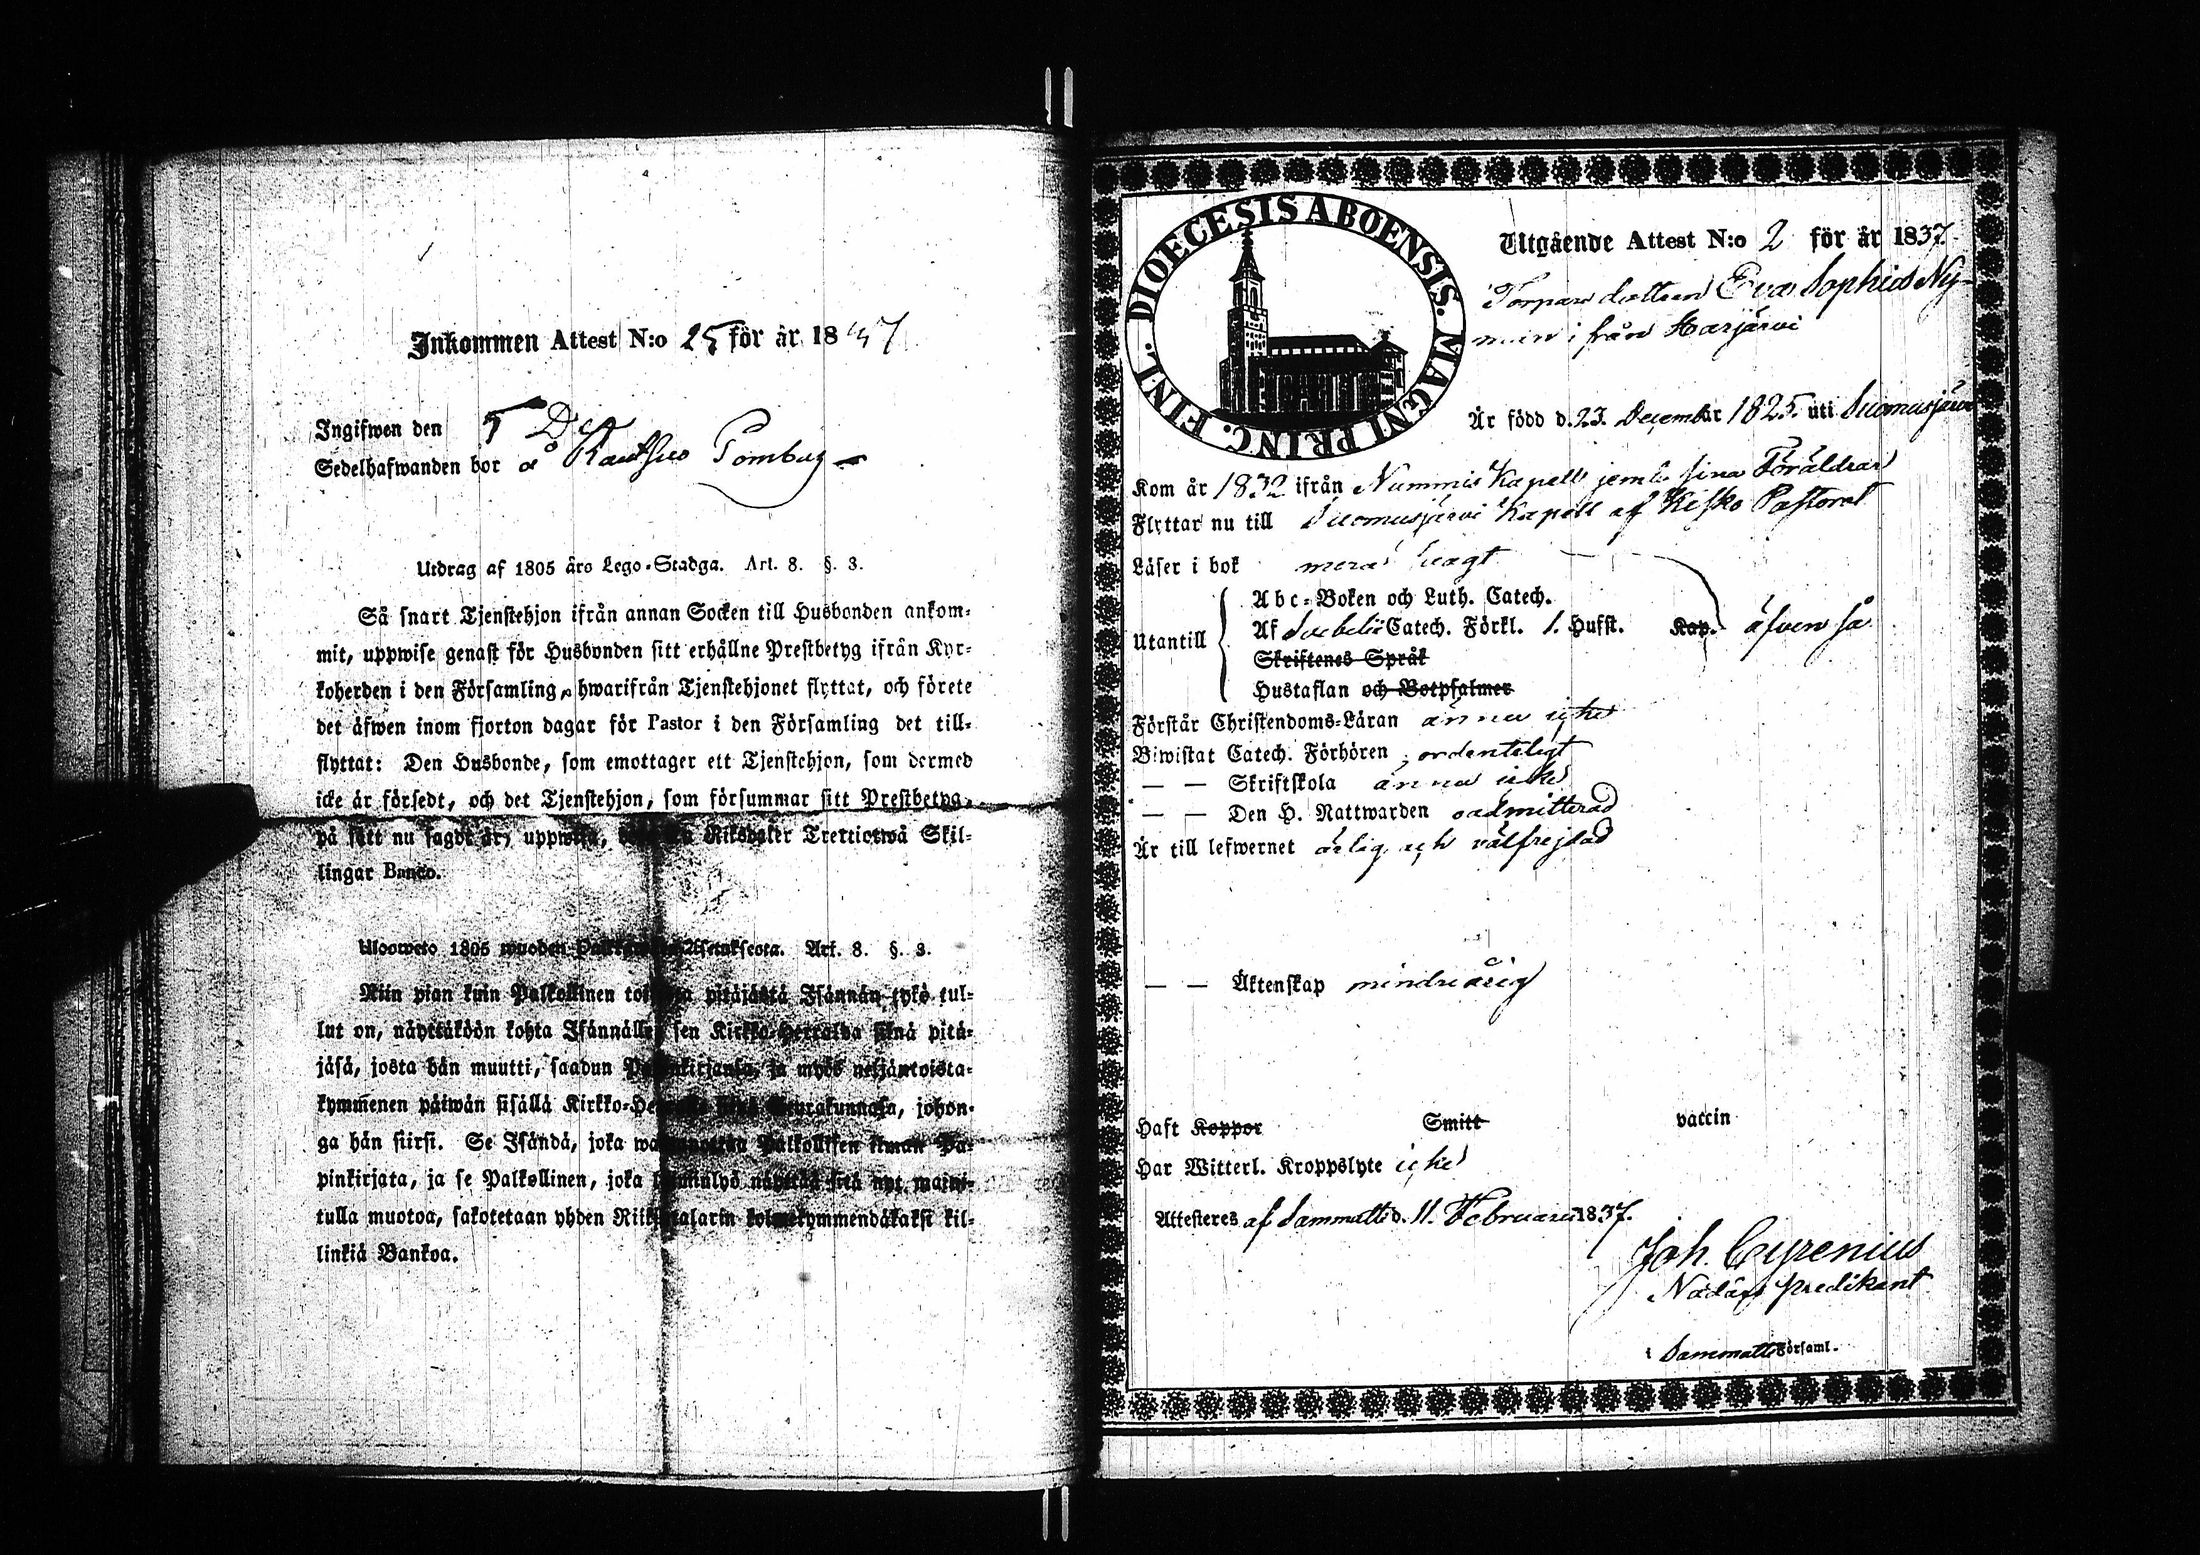 Inkommen Attest N:o 25 för år 1837
Ingifwen den 5 Dc
Sedelhafwanden bor å
Utdrag af 1805 års Lego-Stadga. Art. 8. §. 3.
Så snart Tjenstehjon ifrån annan Socken till Husbonden ankom-
mit, uppwise genast för Husbonden sitt erhållne Prestbetyg ifrån Kyr-
koherden i den Församling, hwarifrån Tjenstehjonet flyttat, och förete
det äfwen inom fjorton dagar för Pastor i den Församling det till-
flyttat: Den Husbonde, som emottager ett Tjenstehjon, som dermed
icke är försedt, och det Tjenstehjon, som försummar sitt Prestbetyg,
på sätt nu sagdt är, uppwisa, Riksdaler Trettiotwå Skil-
lingar Banco.
Ulosweto 1805 wuoden Asetuksesta. Art. 8. §. 3.
Niin pian kuin Palkollinen pitäjästä Isännän tykö tul-
lut on, näyttäköön kohta Isännälle sen Kirkko-Herralda siinä pitä-
jäsä, josta hän muutti, saadun ja myös neljäntoista-
kymmenen päiwän sisällä Kirkko- Seurakunnasa, johon-
ga hän siirsi. Se Isändä, joka Palkollisen ilman Pa-
pinkirjata, ja se Palkollinen, joka näyttää sitä nyt maini-
tulla muotoa, sakotetaan yhden kolmekymmendäkaksi kil-
linkiä Bankoa.
DIOECESIS ABOENSIS. MAGNI PRINC. FINL.
Utgående Attest N:o 2 för år 1837.
Torpare dottren Eva Sophia Ny-
man ifrån Harjärvi
Är född d. 23. December 1825. uti Suomusjärvi
Kom år 1832 ifrån Nummis Kapell jemte sina Föräldrar
Flyttar nu till Suomusjärvi Kapell af Kisko Pastorat
Läser i bok svagt
Abc-Boken och Luth. Catech.
Utantill Af Svebelii Catech. Förkl. 1. Hufst. Kap. äfven så
Skriftenes Språk
Hustaflan och Botpsalmer
Förstår Christendoms-Läran ännu icke
Biwistat Catech. Förhören ordenteligt
— — Skriftskola ännu icke
— — Den H. Nattwarden oadmitterad
Är till lefwernet ärlig och välfrejdad
— — Äktenskap mindreårig
Haft Koppor Smitt vaccin
Har Witterl. Kroppslyte icke
Attesteras af Sammatti d. 11. Februarii 1837.
Joh. Cyrenius
Nådårs predikant
i Sammatti Församl.